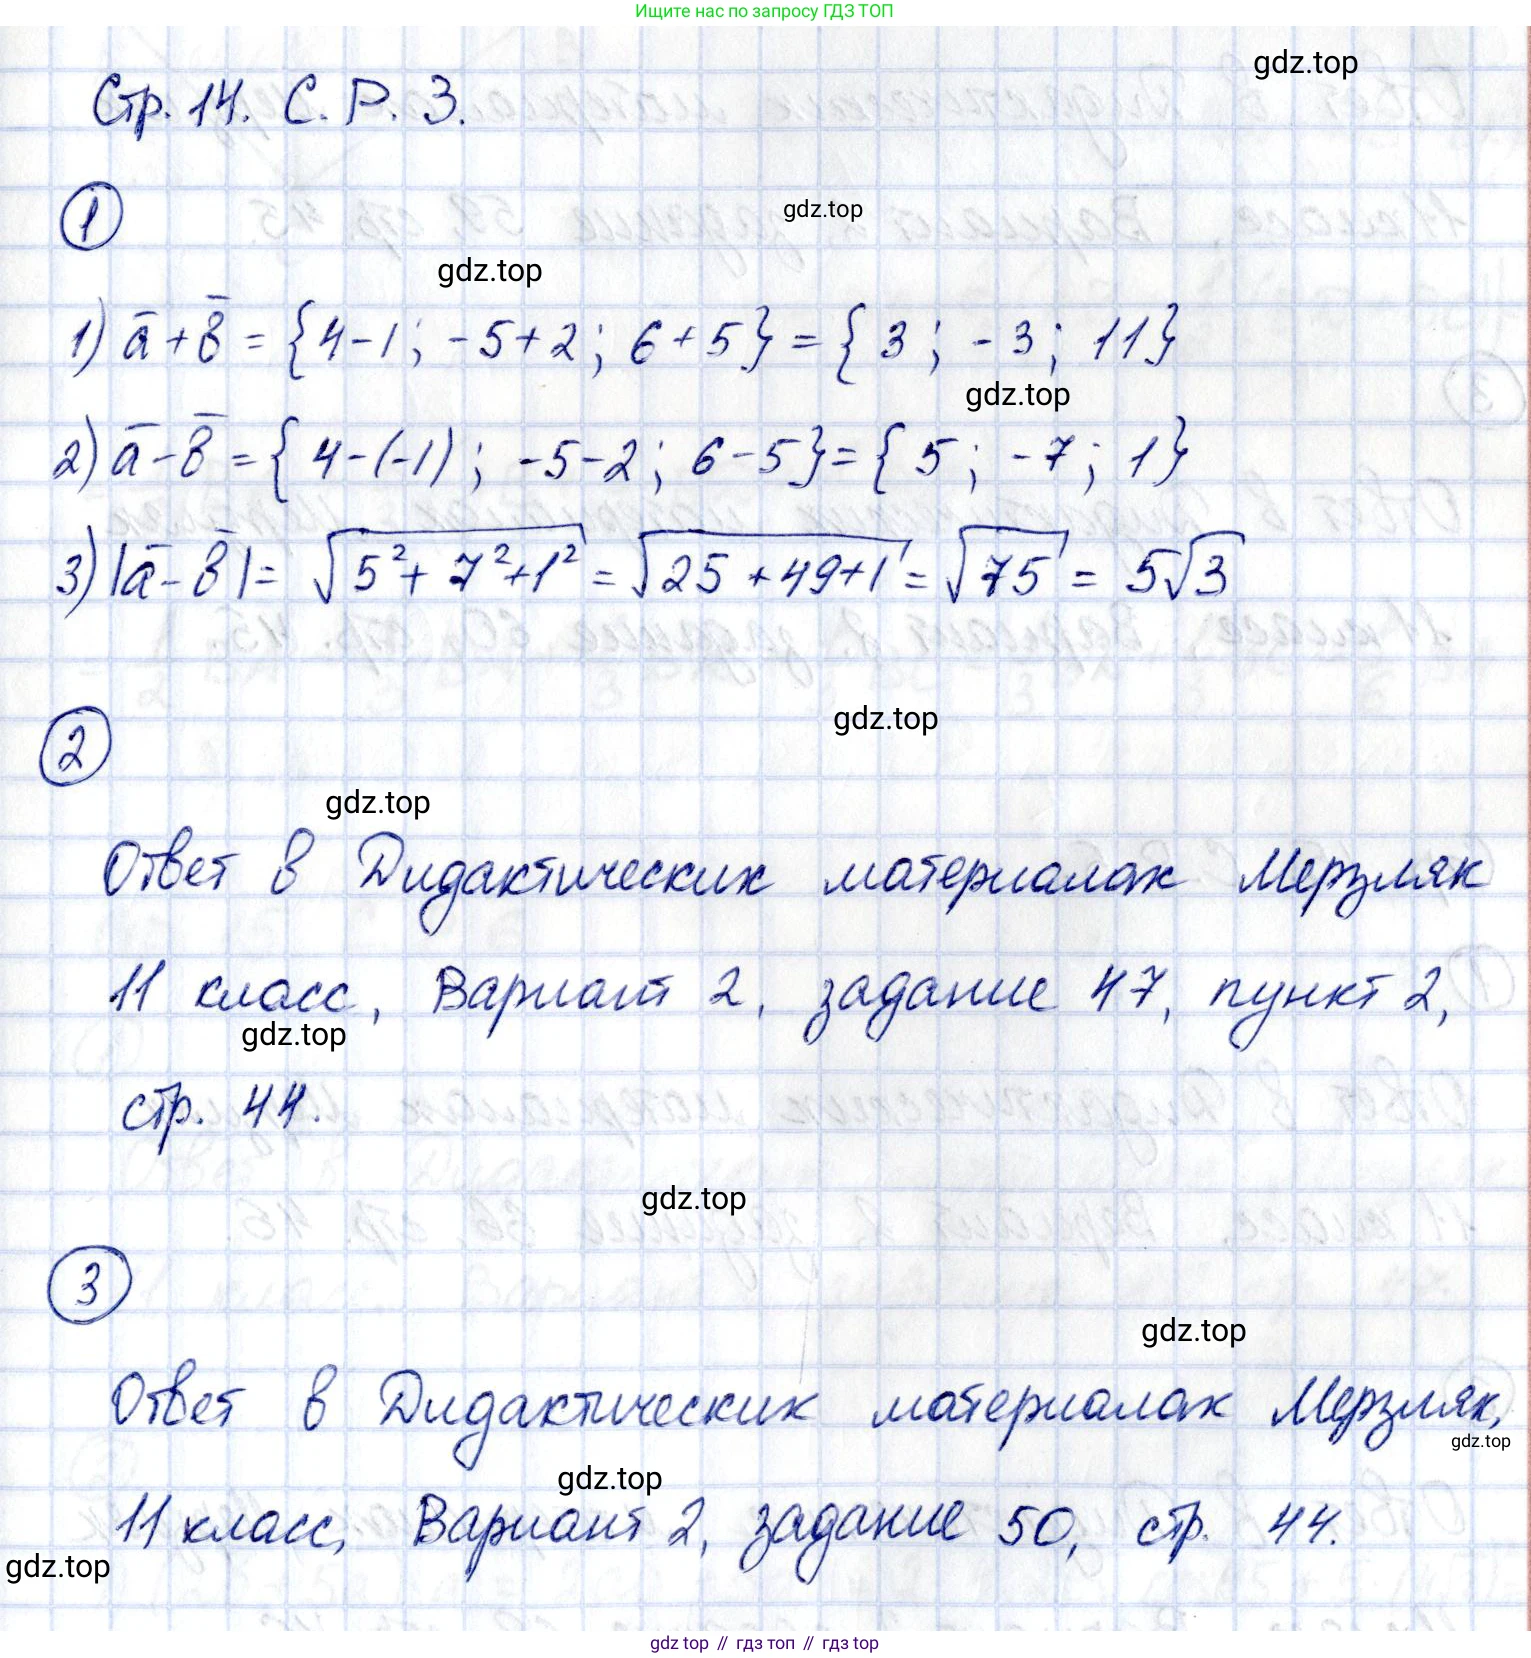 Ищите нас по запросу ГДЗ ТОП
gdz.top
Стр. 14. С. Р. 3.
1
gdz.top
gdz.top
1) a̅ + b̅ = {4-1; -5+2; 6+5} = {3; -3; 11}
gdz.top
2) a̅ - b̅ = {4-(-1); -5-2; 6-5} = {5; -7; 1}
3) |a̅ - b̅| = √(5²+7²+1²) = √(25+49+1) = √75 = 5√3
gdz.top
2
gdz.top
Ответ в Дидактических материалах Мерзляк
11 класс, Вариант 2, задание 47, пункт 2,
gdz.top
стр. 44.
gdz.top
3
gdz.top
Ответ в Дидактических материалах Мерзляк,
gdz.top
gdz.top
11 класс, Вариант 2, задание 50, стр. 44.
gdz.top
gdz top // гдз топ // гдз top